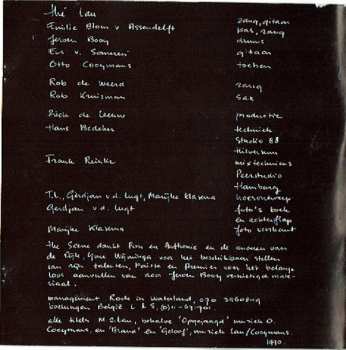 Thé Lau zang, gitaar
Emilie Blom v Assendelft bas, zang
Jeroen Booy drums
Eus v. Someren gitaar
Otto Cooymans toetsen
Rob de Weerd zang
Rob Kruisman sax
Dick de Leeuw productie
Hans Bedeker techniek
Studio 88
Hilversum
Frank Reinke mixtechniek
Peerstudio
Hamburg
T.L, Gerdjan v.d. Lugt, Marijke Klasema hoesontwerp
Gerdjan v.d. Lugt foto's hoek
en achterflap
Marijke Klasema foto voorkant
The Scene dankt Ron en Anthonie en de anderen van
de Rijk, voor het beschikbaar stellen
van zijn talenten, Paiste en Premier voor het belange-
loos aanvullen van door Jeroen Booy vernietigd mate-
riaal.
management Rock in Waterland, 070
boekingen België L & S,
alle liedjes M.C. Lau, behalve 'Opgejaagd' muziek O.
Cooymans, en 'Brand' en 'Geloof', muziek Lau/Cooymans.
1990